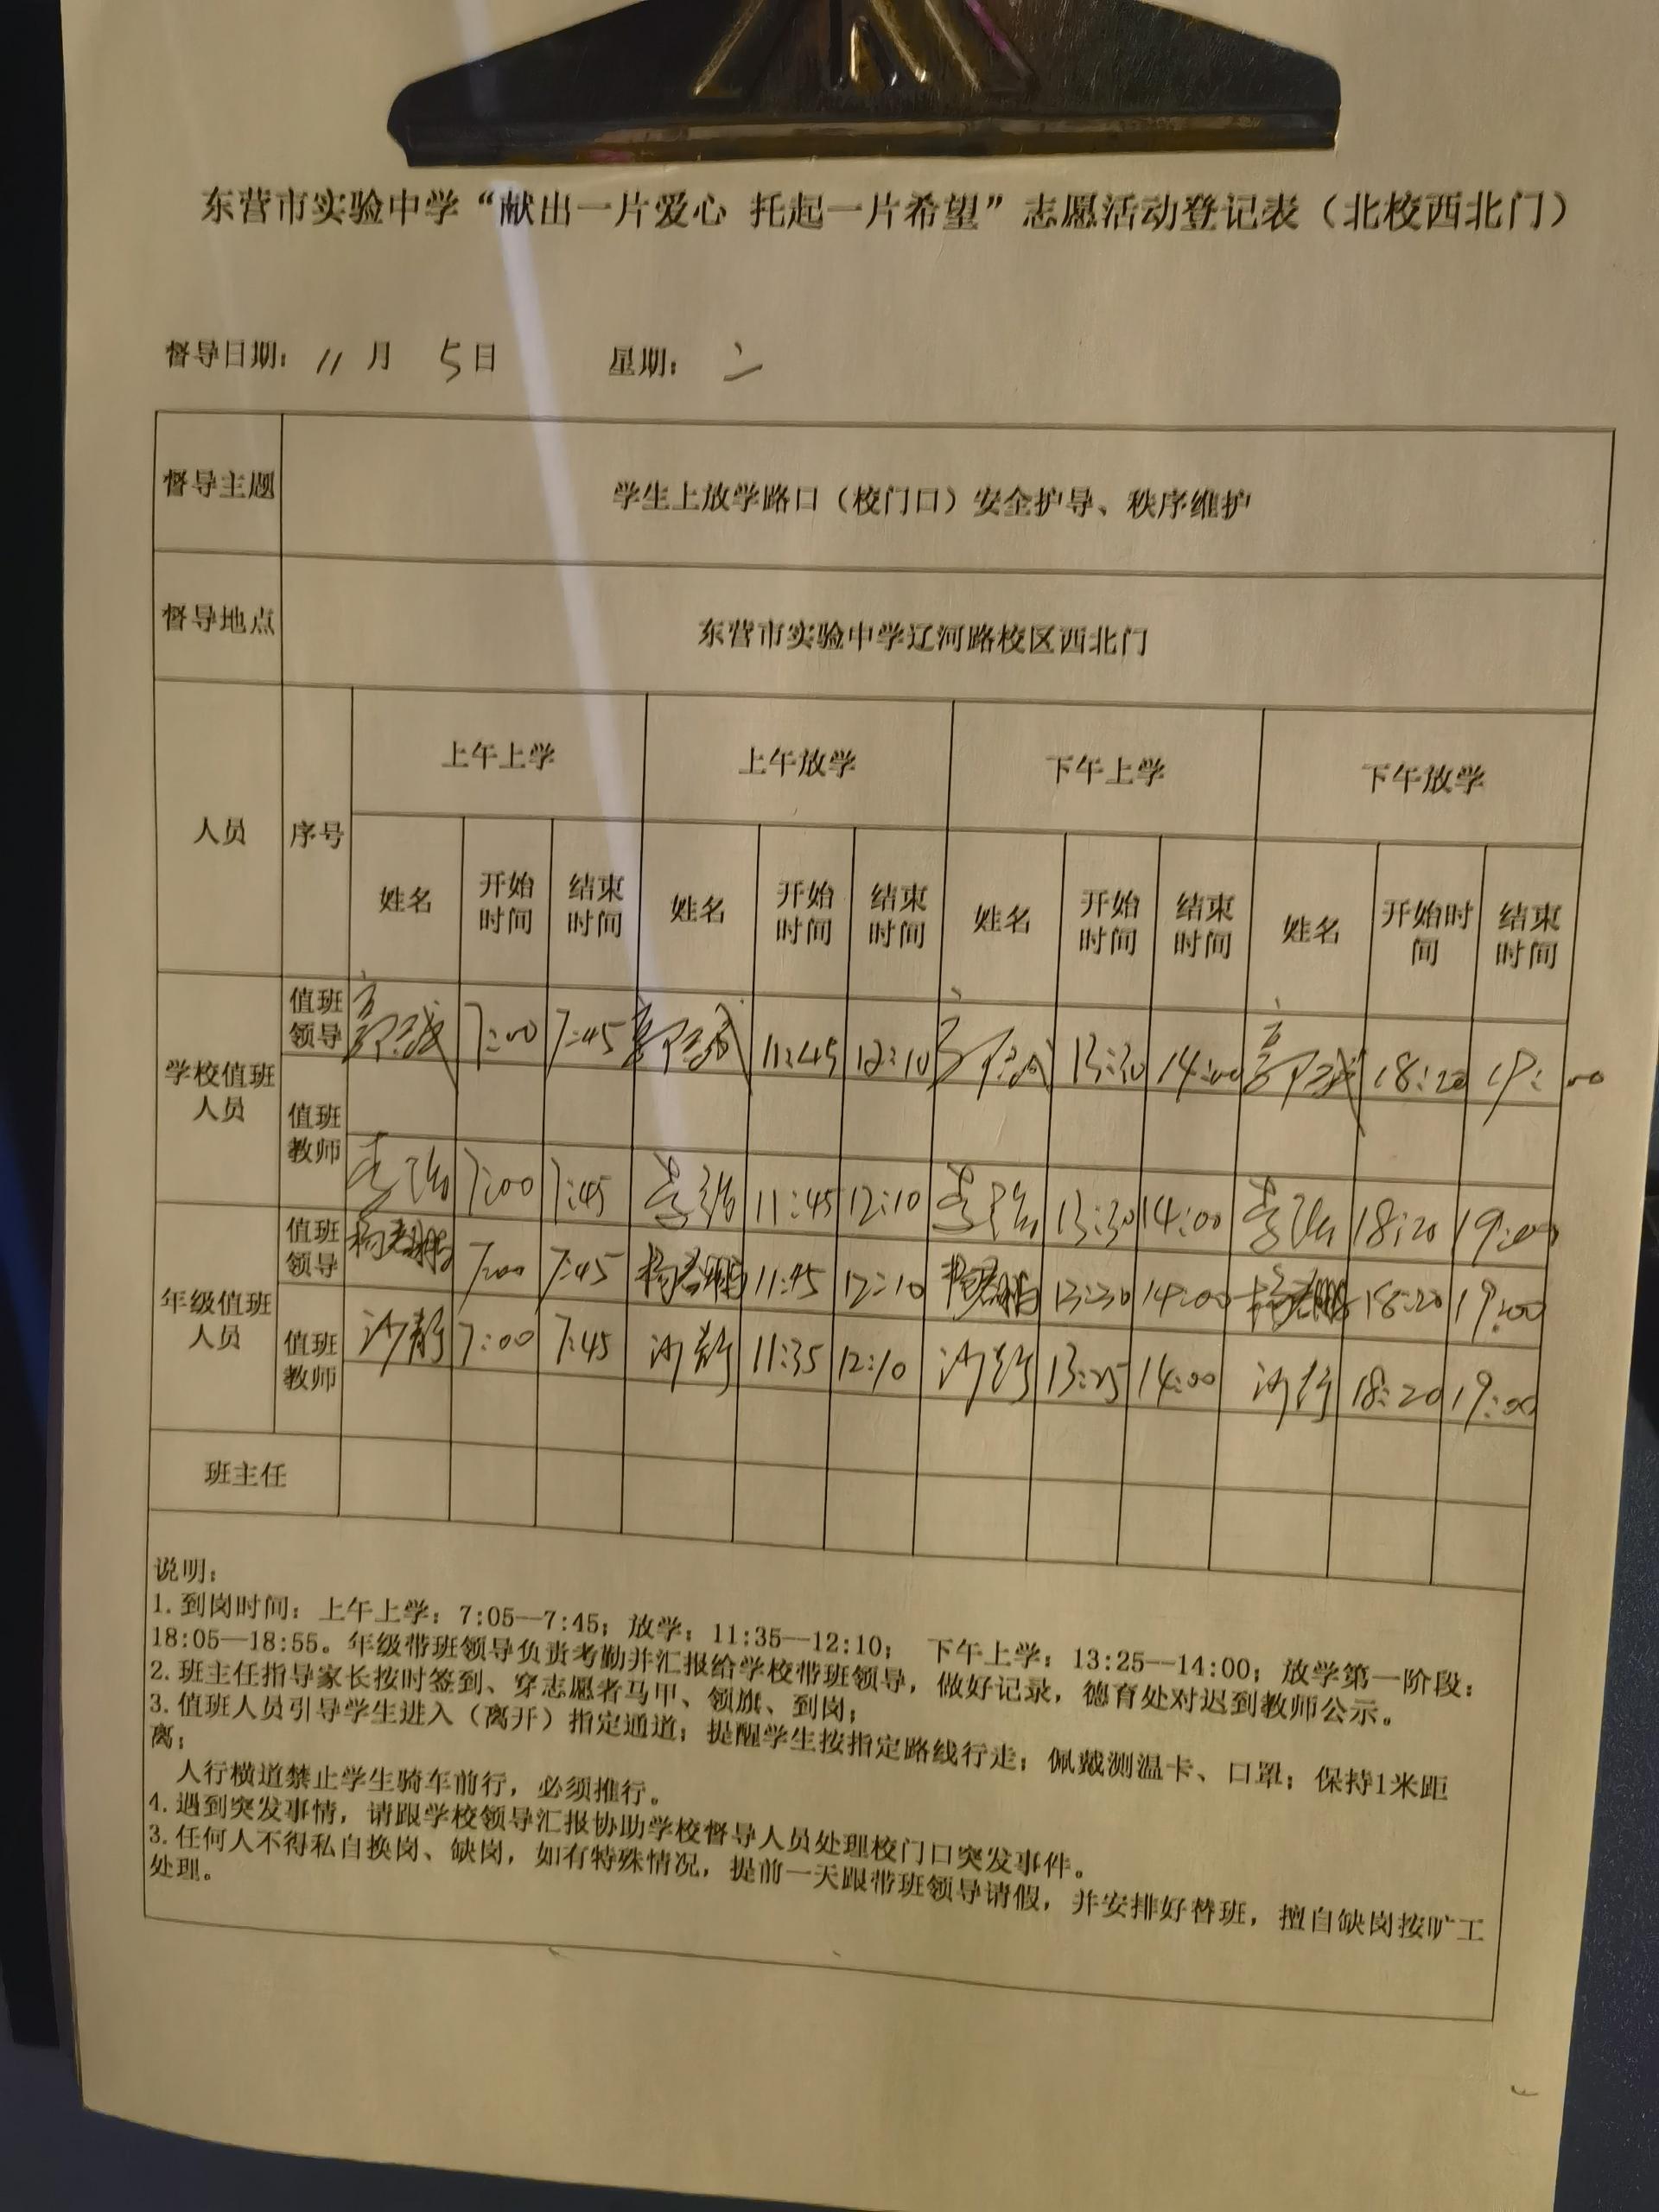 东营市实验中学“献出一片爱心 托起一片希望”志愿活动登记表（北校西北门）
督导日期： 11 月 5 日 星期： 二
督导主题 学生上放学路口（校门口）安全护导、秩序维护
督导地点 东营市实验中学辽河路校区西北门
人员 序号 上午上学 上午放学 下午上学 下午放学
姓名 开始时间 结束时间 姓名 开始时间 结束时间 姓名 开始时间 结束时间 姓名 开始时间 结束时间
学校值班人员 值班领导 7:00 7:45 11:45 12:10 13:30 14:00 18:20 19:00
值班教师
7:00 7:45 11:45 12:10 13:30 14:00 18:20 19:00
年级值班人员 值班领导 7:00 7:45 11:45 12:10 13:30 14:00 18:20 19:00
值班教师 沙静 7:00 7:45 沙静 11:35 12:10 沙静 13:25 14:00 沙静 18:20 19:00
班主任
说明：
1.到岗时间：上午上学：7:05—7:45；放学：11:35—12:10； 下午上学：13:25—14:00；放学第一阶段：
18:05—18:55。年级带班领导负责考勤并汇报给学校带班领导，做好记录，德育处对迟到教师公示。
2.班主任指导家长按时签到、穿志愿者马甲、领旗、到岗；
3.值班人员引导学生进入（离开）指定通道；提醒学生按指定路线行走；佩戴测温卡、口罩；保持1米距
离；
人行横道禁止学生骑车前行，必须推行。
4.遇到突发事情，请跟学校领导汇报协助学校督导人员处理校门口突发事件。
3.任何人不得私自换岗、缺岗，如有特殊情况，提前一天跟带班领导请假，并安排好替班，擅自缺岗按旷工
处理。